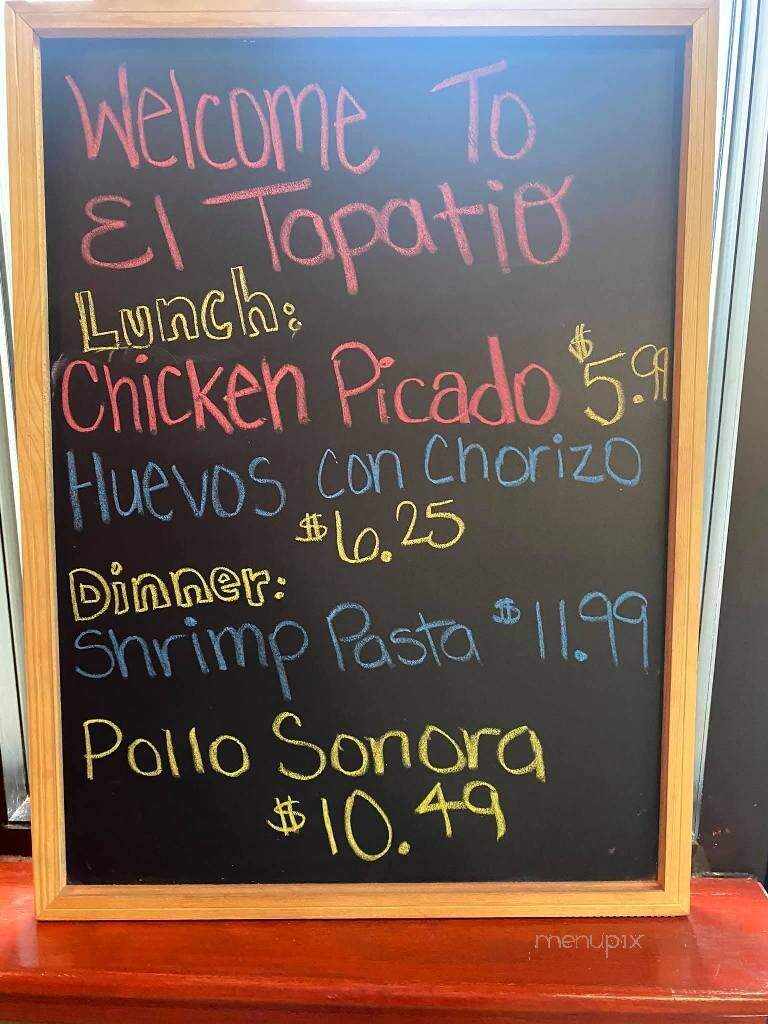 Welcome To
El Tapatio
Lunch:
Chicken Picado $5.99
Huevos con Chorizo
$6.25
Dinner:
Shrimp Pasta $11.99
Pollo Sonora
$10.49
menupix